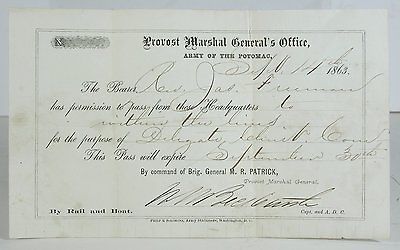 Provost Marshal General's Office,
ARMY OF THE POTOMAC,
Sept. 14th 1863.
The Bearer Rev. Jas. Freeman
has permission to pass from these Headquarters to
within the lines
for the purpose of Delegate, Christ. Com
This Pass will expire September 30th
By command of Brig. General M. R. PATRICK,
Provost Marshal General.
Capt. and A. D. C.
By Rail and Boat.
Philp & Solomons, Army Stationers, Washington, D. C.